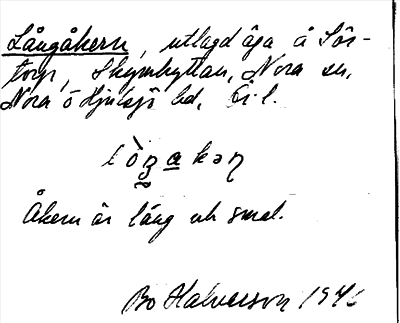 Långåkern, utlagd äga å Sör-
torp, Skymhyttan, Nora sn,
Nora o Hjulsjö bd,
Åkern är lång och smal.
Bo Halvarson 1946